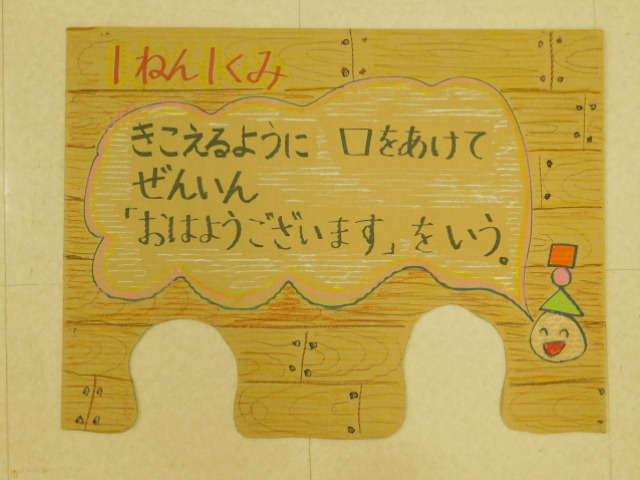 1ねん1くみ
きこえるように 口をあけて
ぜんいん
「おはようございます」をいう。